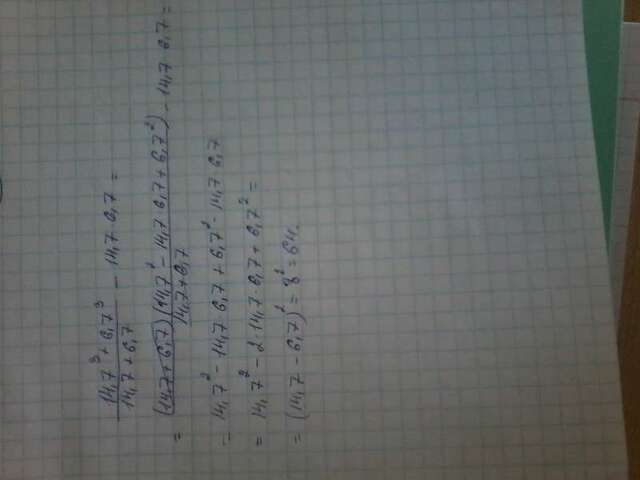 (14,7³ + 6,7³)/(14,7 + 6,7) - 14,7 · 6,7 =
= ((14,7 + 6,7)(14,7² - 14,7 · 6,7 + 6,7²))/(14,7 + 6,7) - 14,7 · 6,7 =
= 14,7² - 14,7 · 6,7 + 6,7² - 14,7 · 6,7
= 14,7² - 2 · 14,7 · 6,7 + 6,7² =
= (14,7 - 6,7)² = 8² = 64.